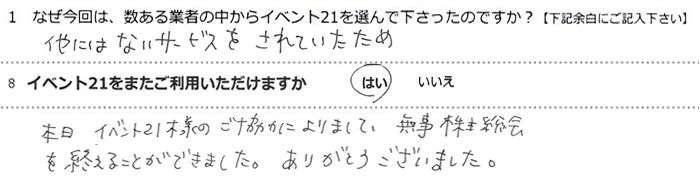 1 なぜ今回は、数ある業者の中からイベント21を選んで下さったのですか？【下記余白にご記入下さい】
他にはないサービスをされていたため
8 イベント21をまたご利用いただけますか はい いいえ
本日 イベント21様のご協力によりまして、無事株主総会
を終えることができました。ありがとうございました。